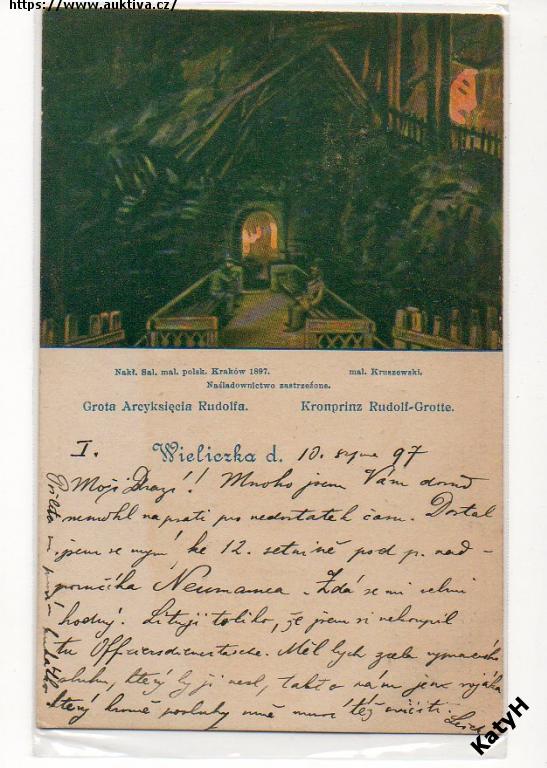 https://www.auktiva.cz/
Nakł. Sal. mal. polsk. Kraków 1897. mal. Kruszewski.
Naśladownictwo zastrzeżone.
Grota Arcyksięcia Rudolfa. Kronprinz Rudolf-Grotte.
I. Wieliczka d. 10. srpna 97
Moji Drazí! Mnoho jsem Vám dosud
nemohl napsati pro nedostatek času. Dostal
jsem se nyní ke 12. setnině pod p. nad-
poručíka Neumanna. Zdá se mi velmi
hodný. Lituji toliko, že jsem si nekoupil
tu Offiziersdienertasche. Měl bych zcela
sluhu, který by ji nesl, takto mám jen vojáka
který kromě posluhy mně musí též cvičiti.
KatyH